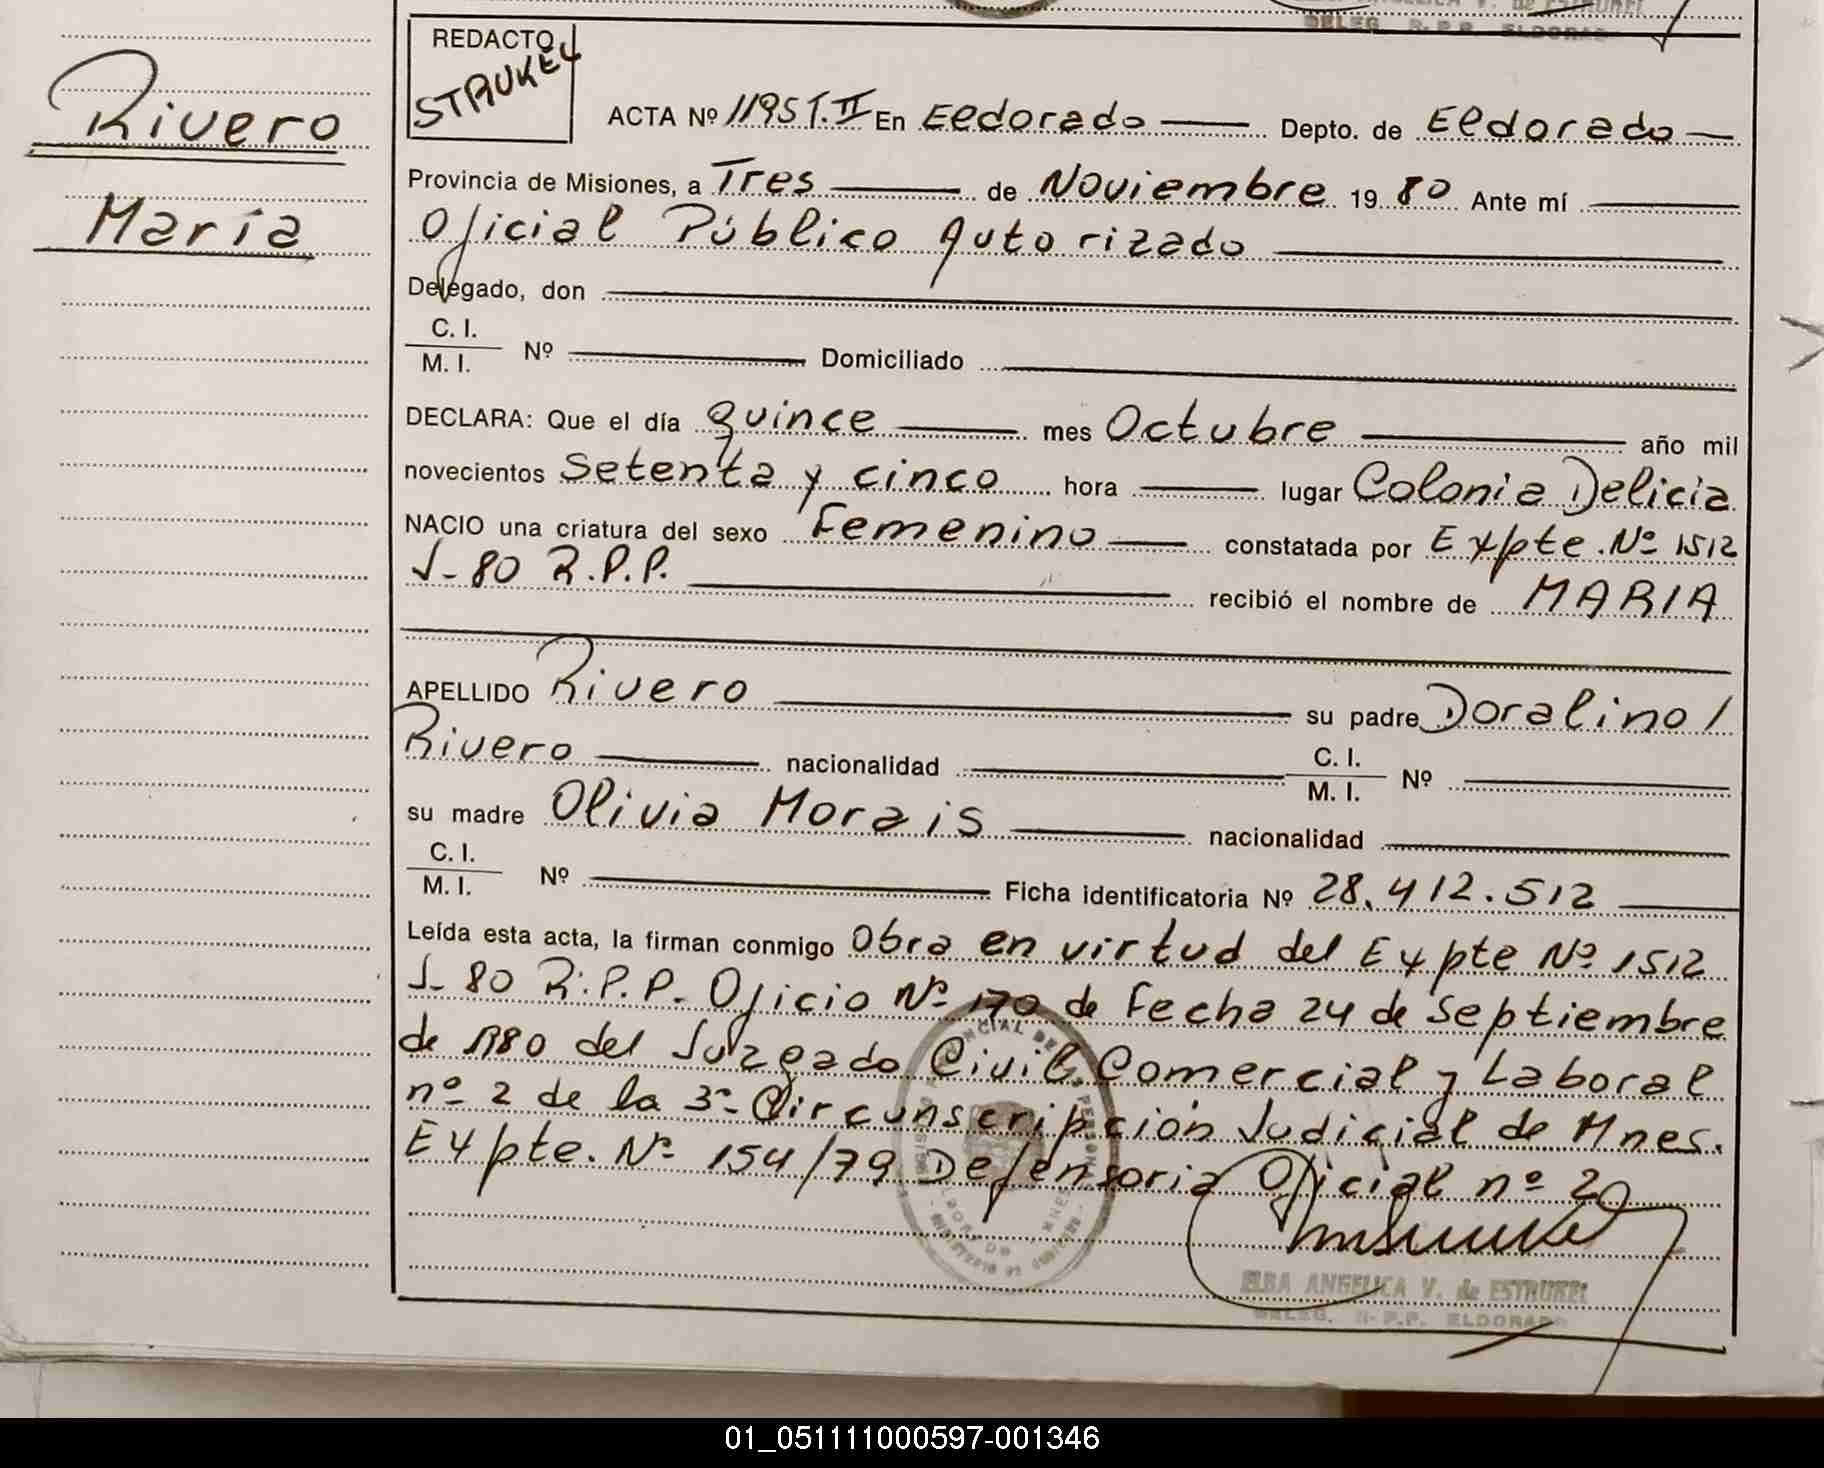 ANGELICA V. de ESTRUKEL
DELEG. R.P.P. ELDORADO
Rivero
María
REDACTO
STRUKEL
ACTA Nº 1195 T.II En Eldorado Depto. de Eldorado
Provincia de Misiones, a Tres de Noviembre 19 80 Ante mí
Oficial Público Autorizado
Delegado, don
C. I.
M. I. Nº Domiciliado
DECLARA: Que el día quince mes Octubre año mil
novecientos Setenta y cinco hora lugar Colonia Delicia
NACIO una criatura del sexo Femenino constatada por Expte. Nº 1512
J-80 R.P.P. recibió el nombre de MARIA
APELLIDO Rivero su padre Doralino /
Rivero nacionalidad C. I. M. I. Nº
su madre Olivia Morais nacionalidad
C. I.
M. I. Nº Ficha identificatoria Nº 28.412.512
Leída esta acta, la firman conmigo Obra en virtud del Expte Nº 1512
J-80 R.P.P. Oficio Nº 170 de Fecha 24 de Septiembre
de 1980 del Juzgado Civil Comercial y Laboral
nº 2 de la 3ª Circunscripción Judicial de Mnes.
Expte. Nº 154/79 Defensoria Oficial nº 2
ELBA ANGELICA V. de ESTRUKEL
DELEG. R.P.P. ELDORADO
01_051111000597-001346